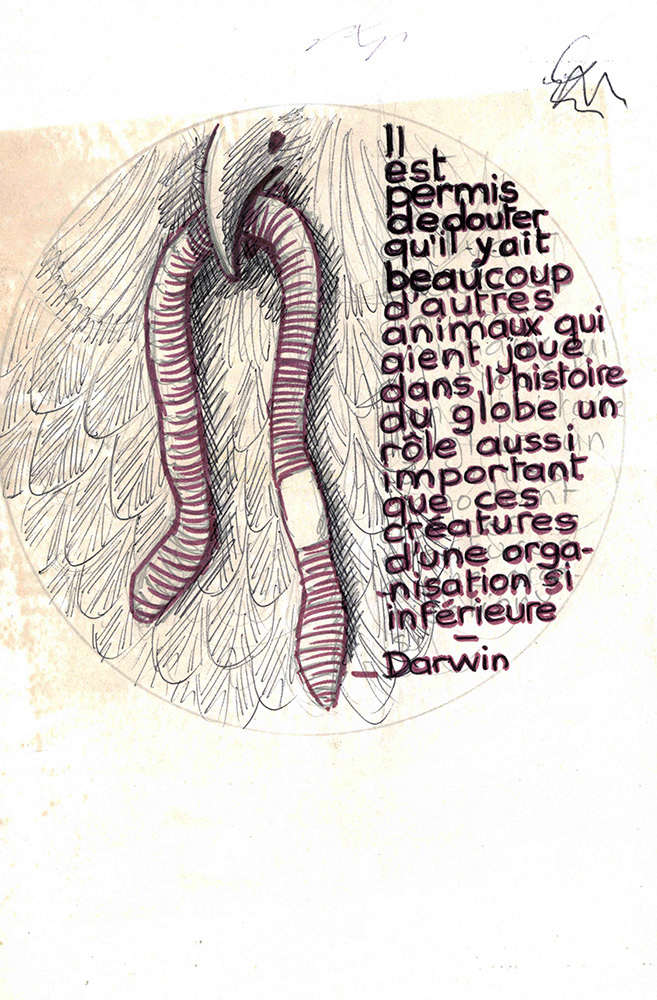 Il
est
permis
de douter
qu'il y ait
beaucoup
d'autres
animaux qui
aient joué
dans l'histoire
du globe un
rôle aussi
important
que ces
créatures
d'une orga-
nisation si
inférieure
— Darwin